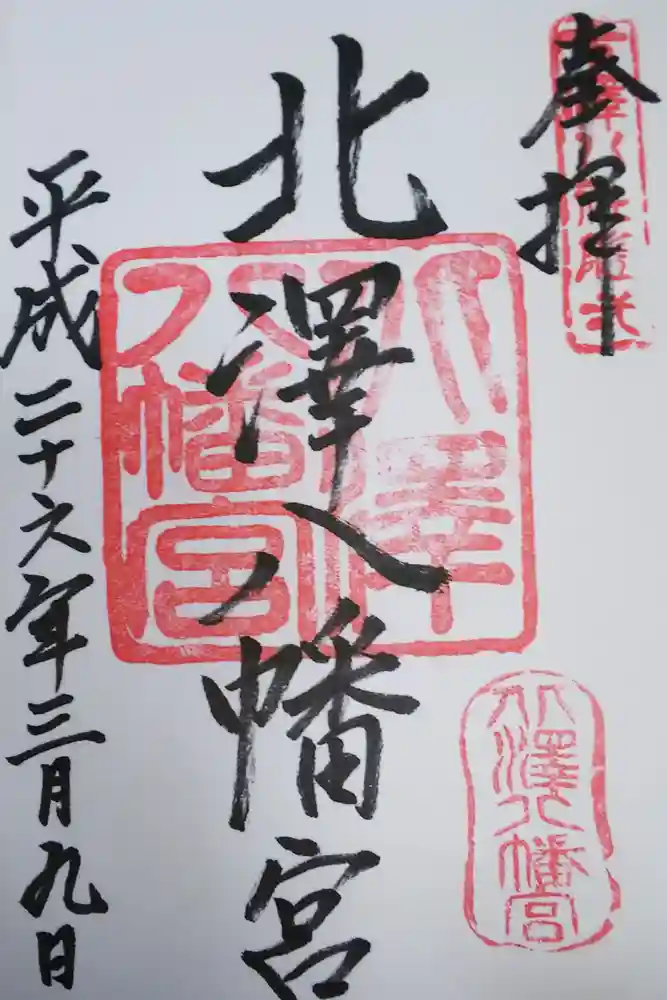 奉拝
北澤八幡宮
平成二十六年三月九日
八澤
八幡宮
北澤八幡宮